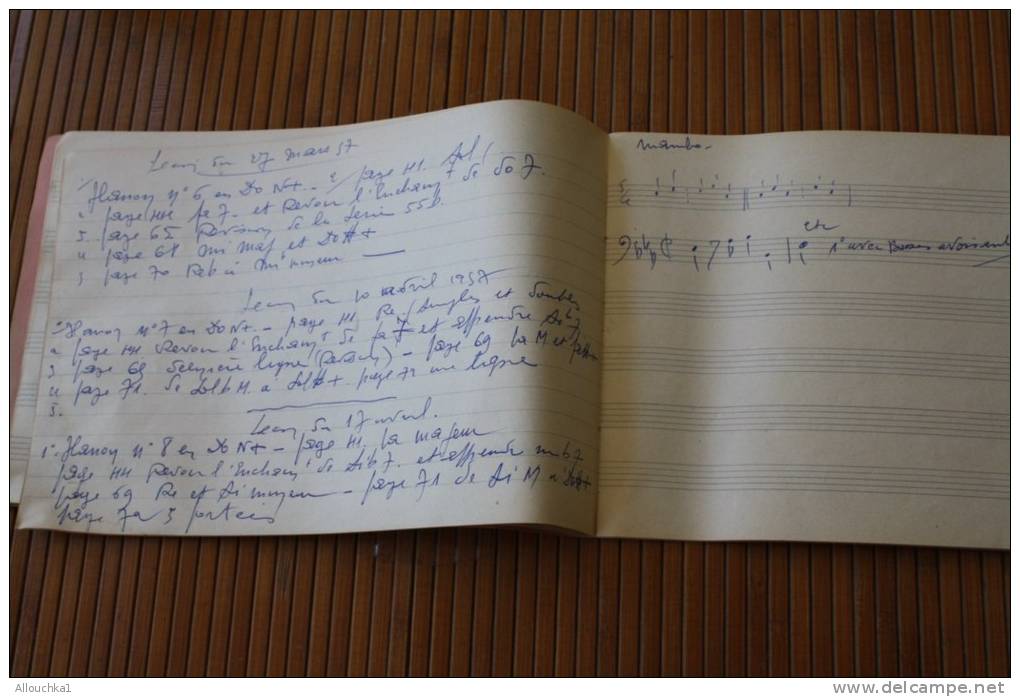 Leçon du 27 mars 57
Hanon n° 6 en Do N+ - page 41. Sol
page 44 fa 7. et Revoir l'Enchaint de do 7.
3. page 65 Révision de la Série 55b.
4 page 68 mi Maj et Do#+
5 page 70 Réb à mi mineur
Leçon du 10 avril 1957
Hanon n° 7 en Do N+. - page 41. Ré / Simples et doubles
page 44. Revoir l'Enchaint de fa 7 et apprendre sib 7
3 page 69 ligne - page 69 La M et
4 page 71. de Solb M. à Sol#+. page 72 une ligne
5.
Leçon du 17 avril.
1° Hanon n° 8 en Do N+ - page 41. La majeur
page 44 Revoir l'Enchaint de sib 7. et apprendre mib 7
page 69 Ré et Si mineur - page 71 de Si M à Do#+
page 72 3 portées
Mambo.
etc
1° avec Basses avoisinant
Allouchka1
www.delcampe.net